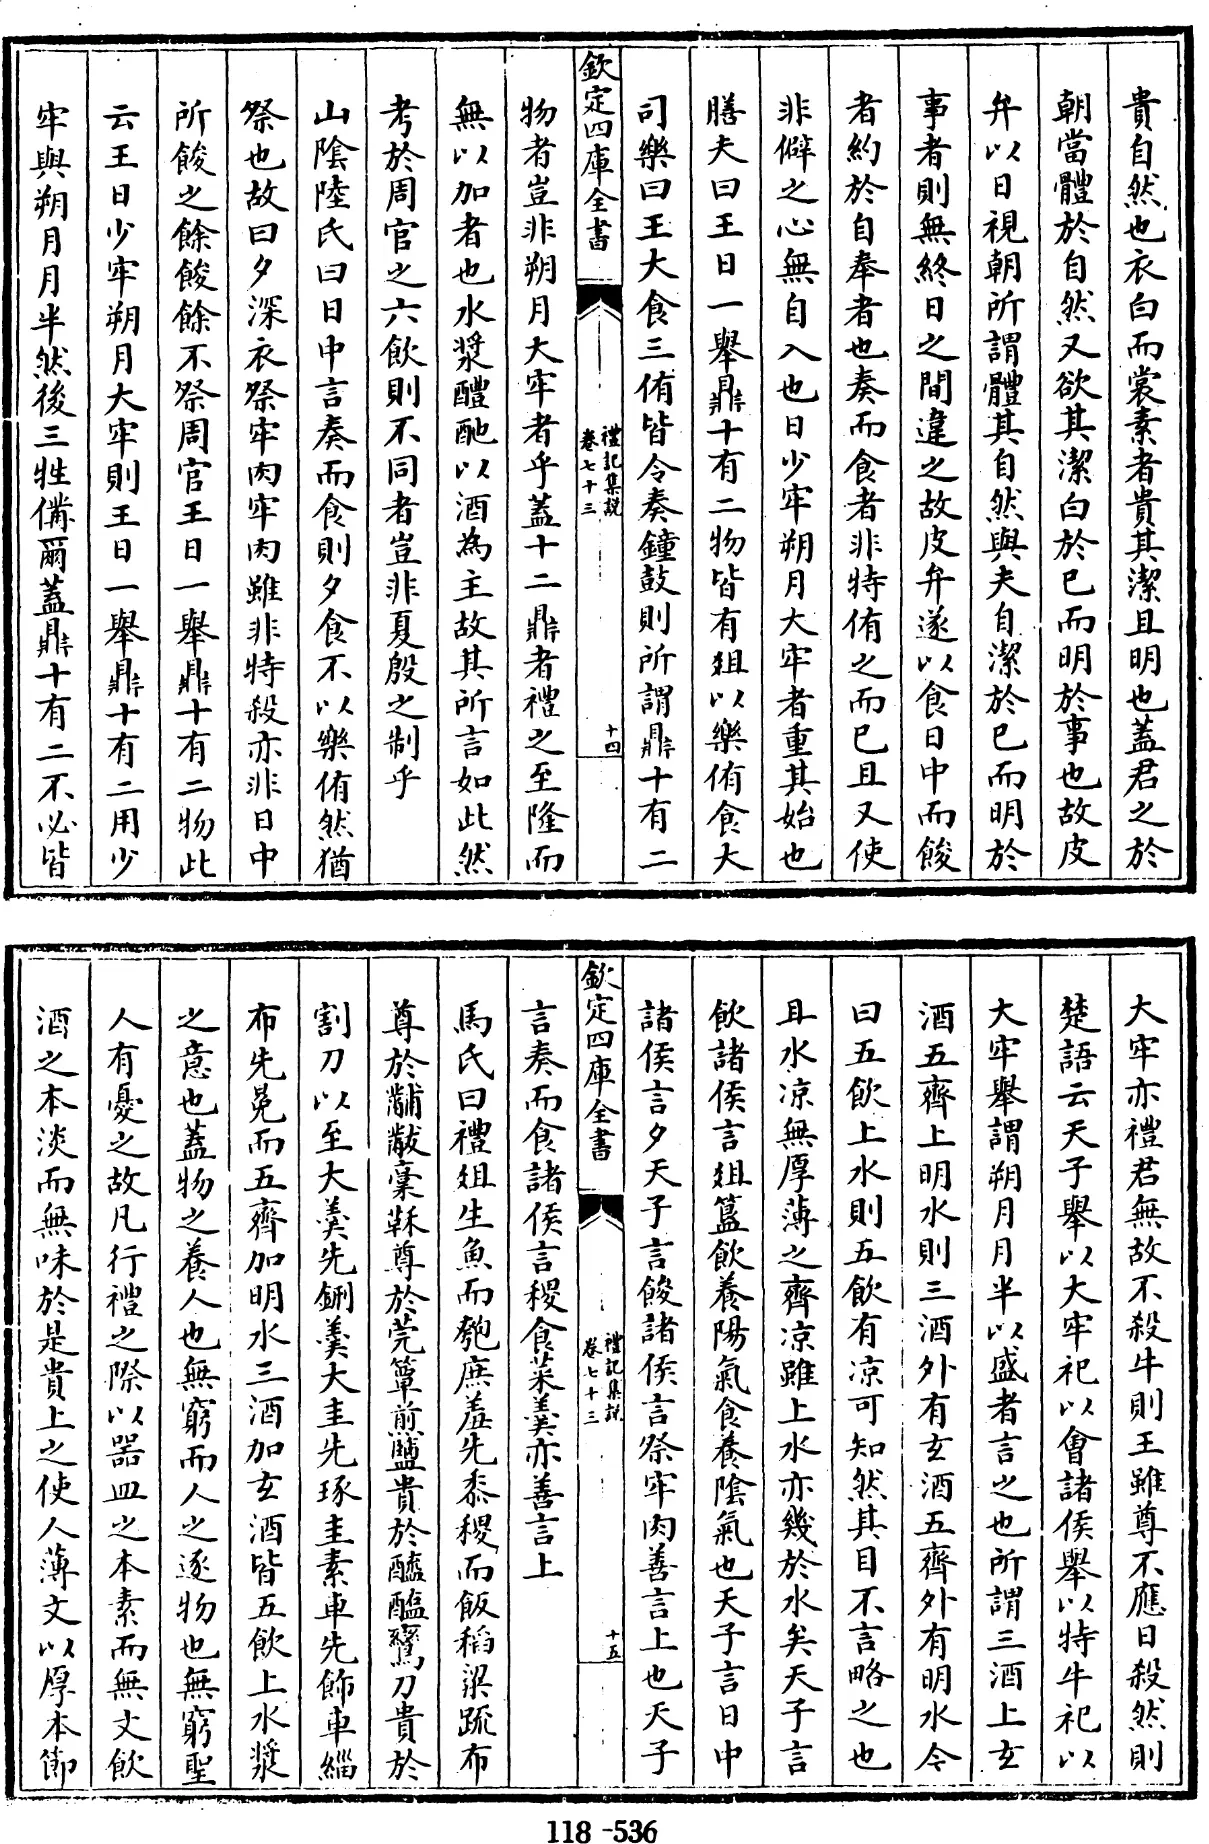 貴自然也衣白而裳素者貴其潔且明也蓋君之於
朝當體於自然又欲其潔白於已而明於事也故皮
弁以日視朝所謂體其自然與夫自潔於已而明於
事者則無終日之間違之故皮弁遂以食日中而餕
者約於自奉者也奏而食者非特侑之而已且又使
非僻之心無自入也日少牢朔月大牢者重其始也
膳夫曰王日一舉鼎十有二物皆有俎以樂侑食大
司樂曰王大食三侑皆令奏鐘鼓則所謂鼎十有二
欽定四庫全書
禮記集說
卷七十三
十四
物者豈非朔月大牢者乎蓋十二鼎者禮之至隆而
無以加者也水漿醴酏以酒為主故其所言如此然
考於周官之六飲則不同者豈非夏殷之制乎
山陰陸氏曰日中言奏而食則夕食不以樂侑然猶
祭也故曰夕深衣祭牢肉牢肉雖非特殺亦非日中
所餕之餘餕餘不祭周官王日一舉鼎十有二物此
云王日少牢朔月大牢則王日一舉鼎十有二用少
牢與朔月月半然後三牲備爾蓋鼎十有二不必皆
大牢亦禮君無故不殺牛則王雖尊不應日殺然則
楚語云天子舉以大牢祀以會諸侯舉以特牛祀以
大牢舉謂朔月月半以盛者言之也所謂三酒上玄
酒五齊上明水則三酒外有玄酒五齊外有明水令
曰五飲上水則五飲有凉可知然其目不言略之也
且水凉無厚薄之齊凉雖上水亦幾於水矣天子言
飲諸侯言俎簋飲養陽氣食養陰氣也天子言日中
諸侯言夕天子言餕諸侯言祭牢肉善言上也天子
欽定四庫全書
禮記集說
卷七十三
十五
言奏而食諸侯言稷食菜羮亦善言上
馬氏曰禮俎生魚而匏庶羞先黍稷而飯稻粱疏布
尊於黼黻稾鞂尊於莞簟煎鹽貴於醯醢鸞刀貴於
割刀以至大羮先鉶羮大圭先琢圭素車先飾車緇
布先冕而五齊加明水三酒加玄酒皆五飲上水漿
之意也蓋物之養人也無窮而人之逐物也無窮聖
人有憂之故凡行禮之際以器皿之本素而無文飲
酒之本淡而無味於是貴上之使人薄文以厚本節
118-536